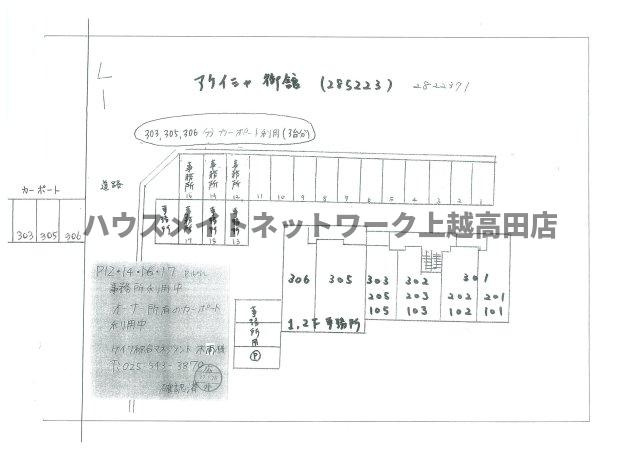 アケイシャ御館 (285223) 2822391
303,305,306 カーポート利用(3台分)
カーポート
道路
事務所 事務所 事務所
16 14 12 11 10 9 8 7 6 5 4 3 2 1
303 305 306
ハウスメイトネットワーク上越高田店
17 15 13
306 305 303 302 301
205 203 202 201
105 103 102 101
1.2F 事務所
P12・14・16・17
事務所利用中
オーナー所有のカーポート
利用中
〒025-543-3870
確認済
事務所用
P